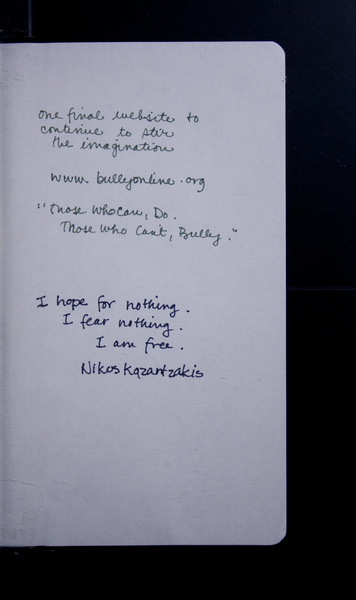 one final website to
continue to stir
the imagination
www.bullyonline.org
"Those who can, Do.
Those who Can't, Bully."
I hope for nothing.
I fear nothing.
I am free.
Nikos Kazantzakis